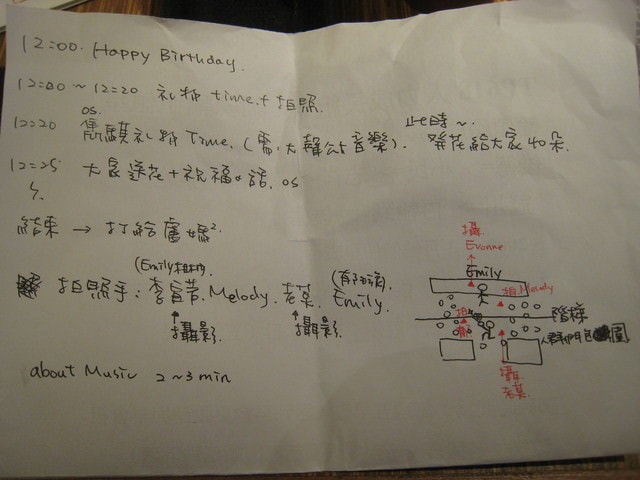 12:00. Happy Birthday.
12:00 ~ 12:20 礼物 time. + 拍照.
os.
此時~.
12=20 礼物 Time. (需. 大聲公與音樂). 發花給大家 40朵.
12=25 大家送花 + 祝福の話. os
結束 → 打給盧媽²
(Emily相機)
拍照手: 李宜芳. Melody. 老菜. Emily.
攝影. 攝影.
about Music 2~3 min
攝.
Evonne
Emily
拍 Melody
拍
階梯
攝
老菜